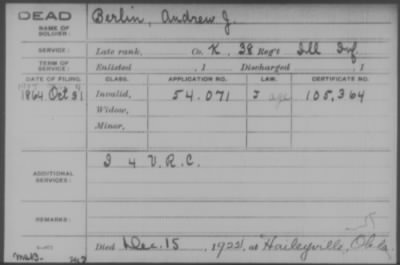 DEAD
NAME OF SOLDIER:
Berlin, Andrew J.
SERVICE:
Late rank, Co. K, 38 Reg't Ill Inf.
TERM OF SERVICE:
Enlisted , 1 Discharged , 1
DATE OF FILING. CLASS. APPLICATION NO. LAW. CERTIFICATE NO.
1864 Oct 31 Invalid, 54.071 105,364
Widow,
Minor,
ADDITIONAL SERVICES:
I 4 V.R.C.
REMARKS:
Died Dec. 15, 1922, at Haileyville, Okla.